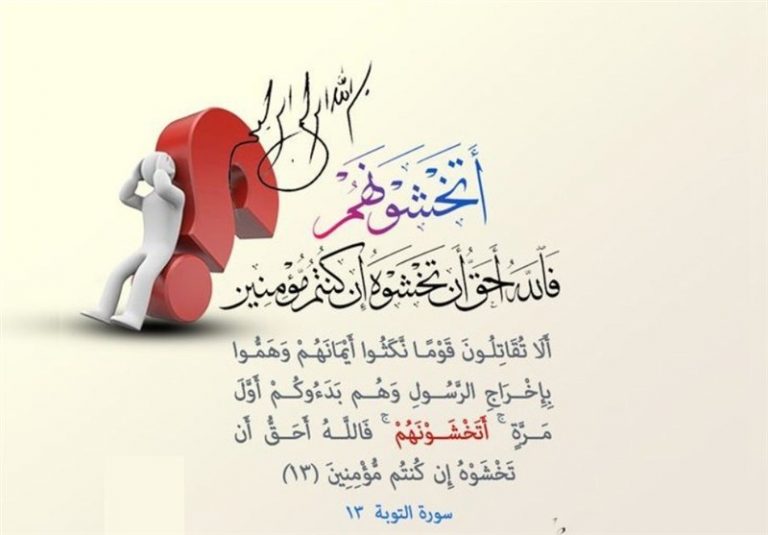 بسم الله الرحمن الرحیم
أَتَخْشَوْنَهُمْ
فَاللَّهُ أَحَقُّ أَن تَخْشَوْهُ إِن كُنتُم مُّؤْمِنِينَ
أَلَا تُقَاتِلُونَ قَوْمًا نَّكَثُوا أَيْمَانَهُمْ وَهَمُّوا
بِإِخْرَاجِ الرَّسُولِ وَهُم بَدَءُوكُمْ أَوَّلَ
مَرَّةٍ ۚ أَتَخْشَوْنَهُمْ ۚ فَاللَّهُ أَحَقُّ أَن
تَخْشَوْهُ إِن كُنتُم مُّؤْمِنِينَ (١٣)
سورة التوبة ١٣